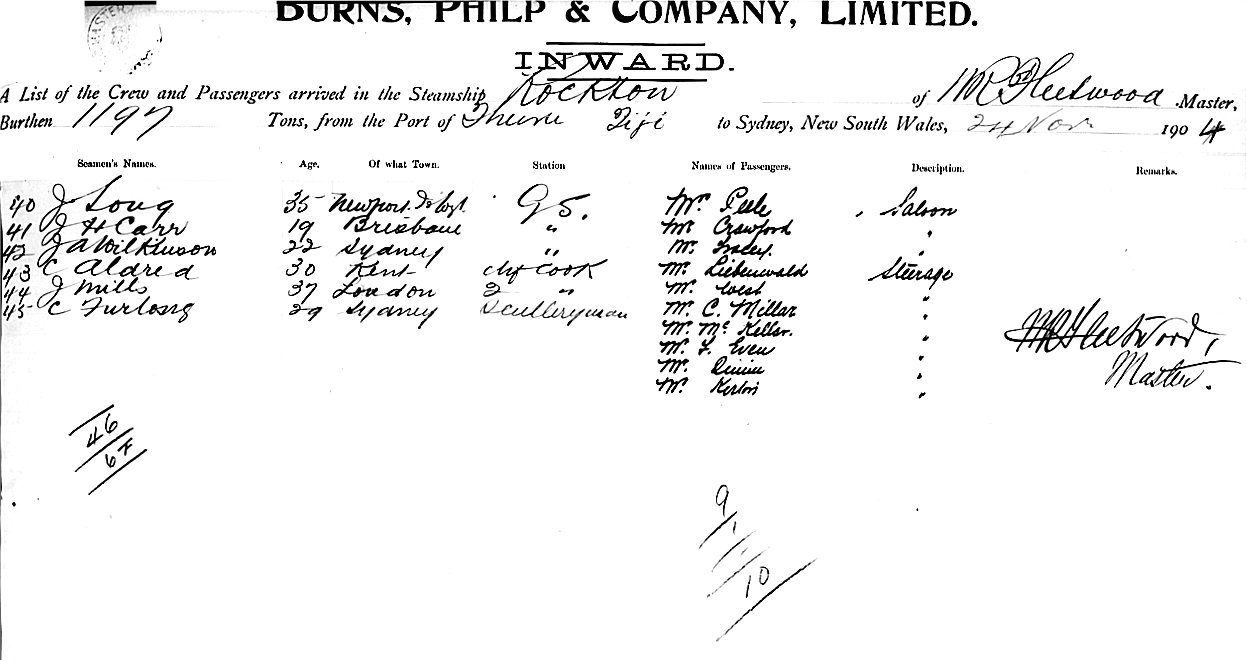 BURNS, PHILP & COMPANY, LIMITED.
INWARD.
A List of the Crew and Passengers arrived in the Steamship Rockton of W R Fleetwood Master,
Burthen 1197 Tons, from the Port of Fiji to Sydney, New South Wales, 24 Nov 1904
Seamen's Names. Age. Of what Town. Station Names of Passengers. Description. Remarks.
40 J Long 35 Newport GS. Mr Peele Saloon
41 J H Carr 19 Brisbane " Mr Crawford "
42 J A Wilkinson 22 Sydney " Mr Tracey "
43 C Aldred 30 Kent Chf Cook Mr Liebenwald Steerage
44 J Mills 37 London 2 " Mr West "
45 C Furlong 29 Sydney Sculleryman Mr C. Millar "
Mr Mc Kellar "
Mr F. Even "
Mr "
Mr "
W R Fleetwood,
Master.
46
67
9
1
10